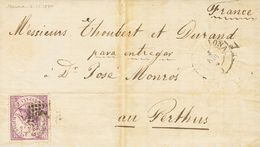 France
Messieurs Thoubert et Durand
para entregar
à Dn José Monros
au Perthus